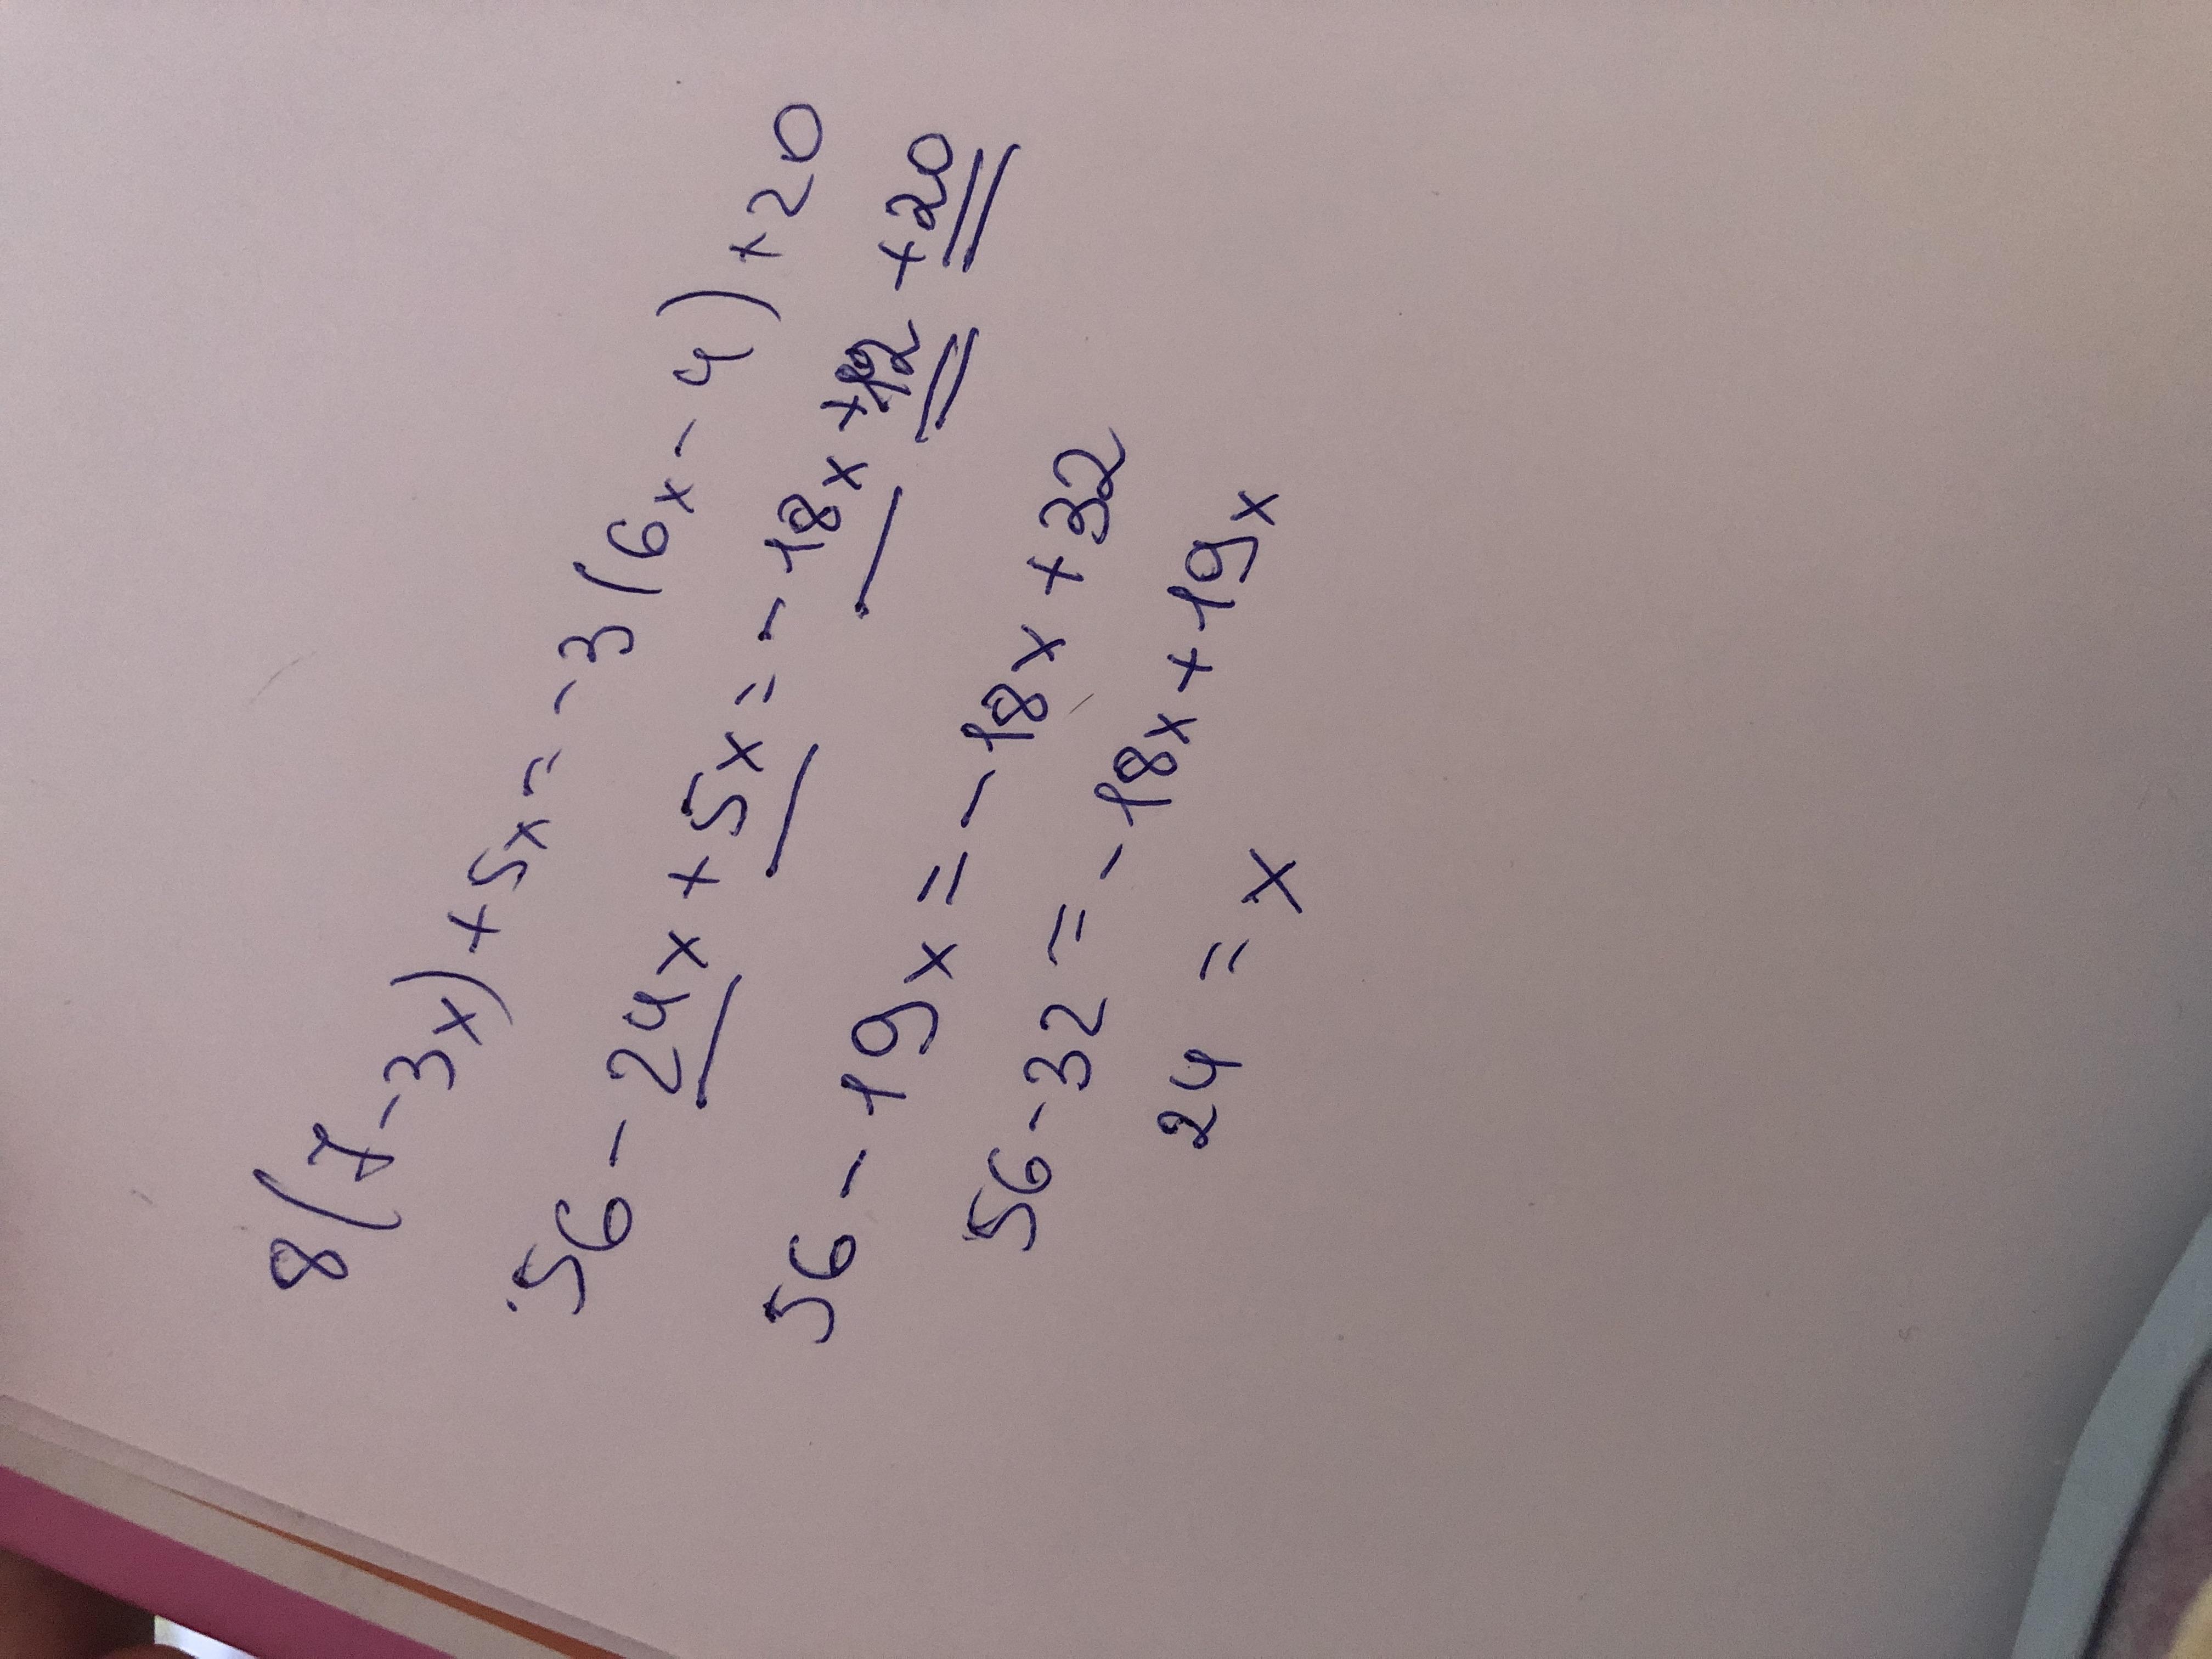 8(7-3x)+5x=-3(6x-4)+20
56-24x+5x=-18x+12+20
56-19x=-18x+32
56-32=-18x+19x
24=x